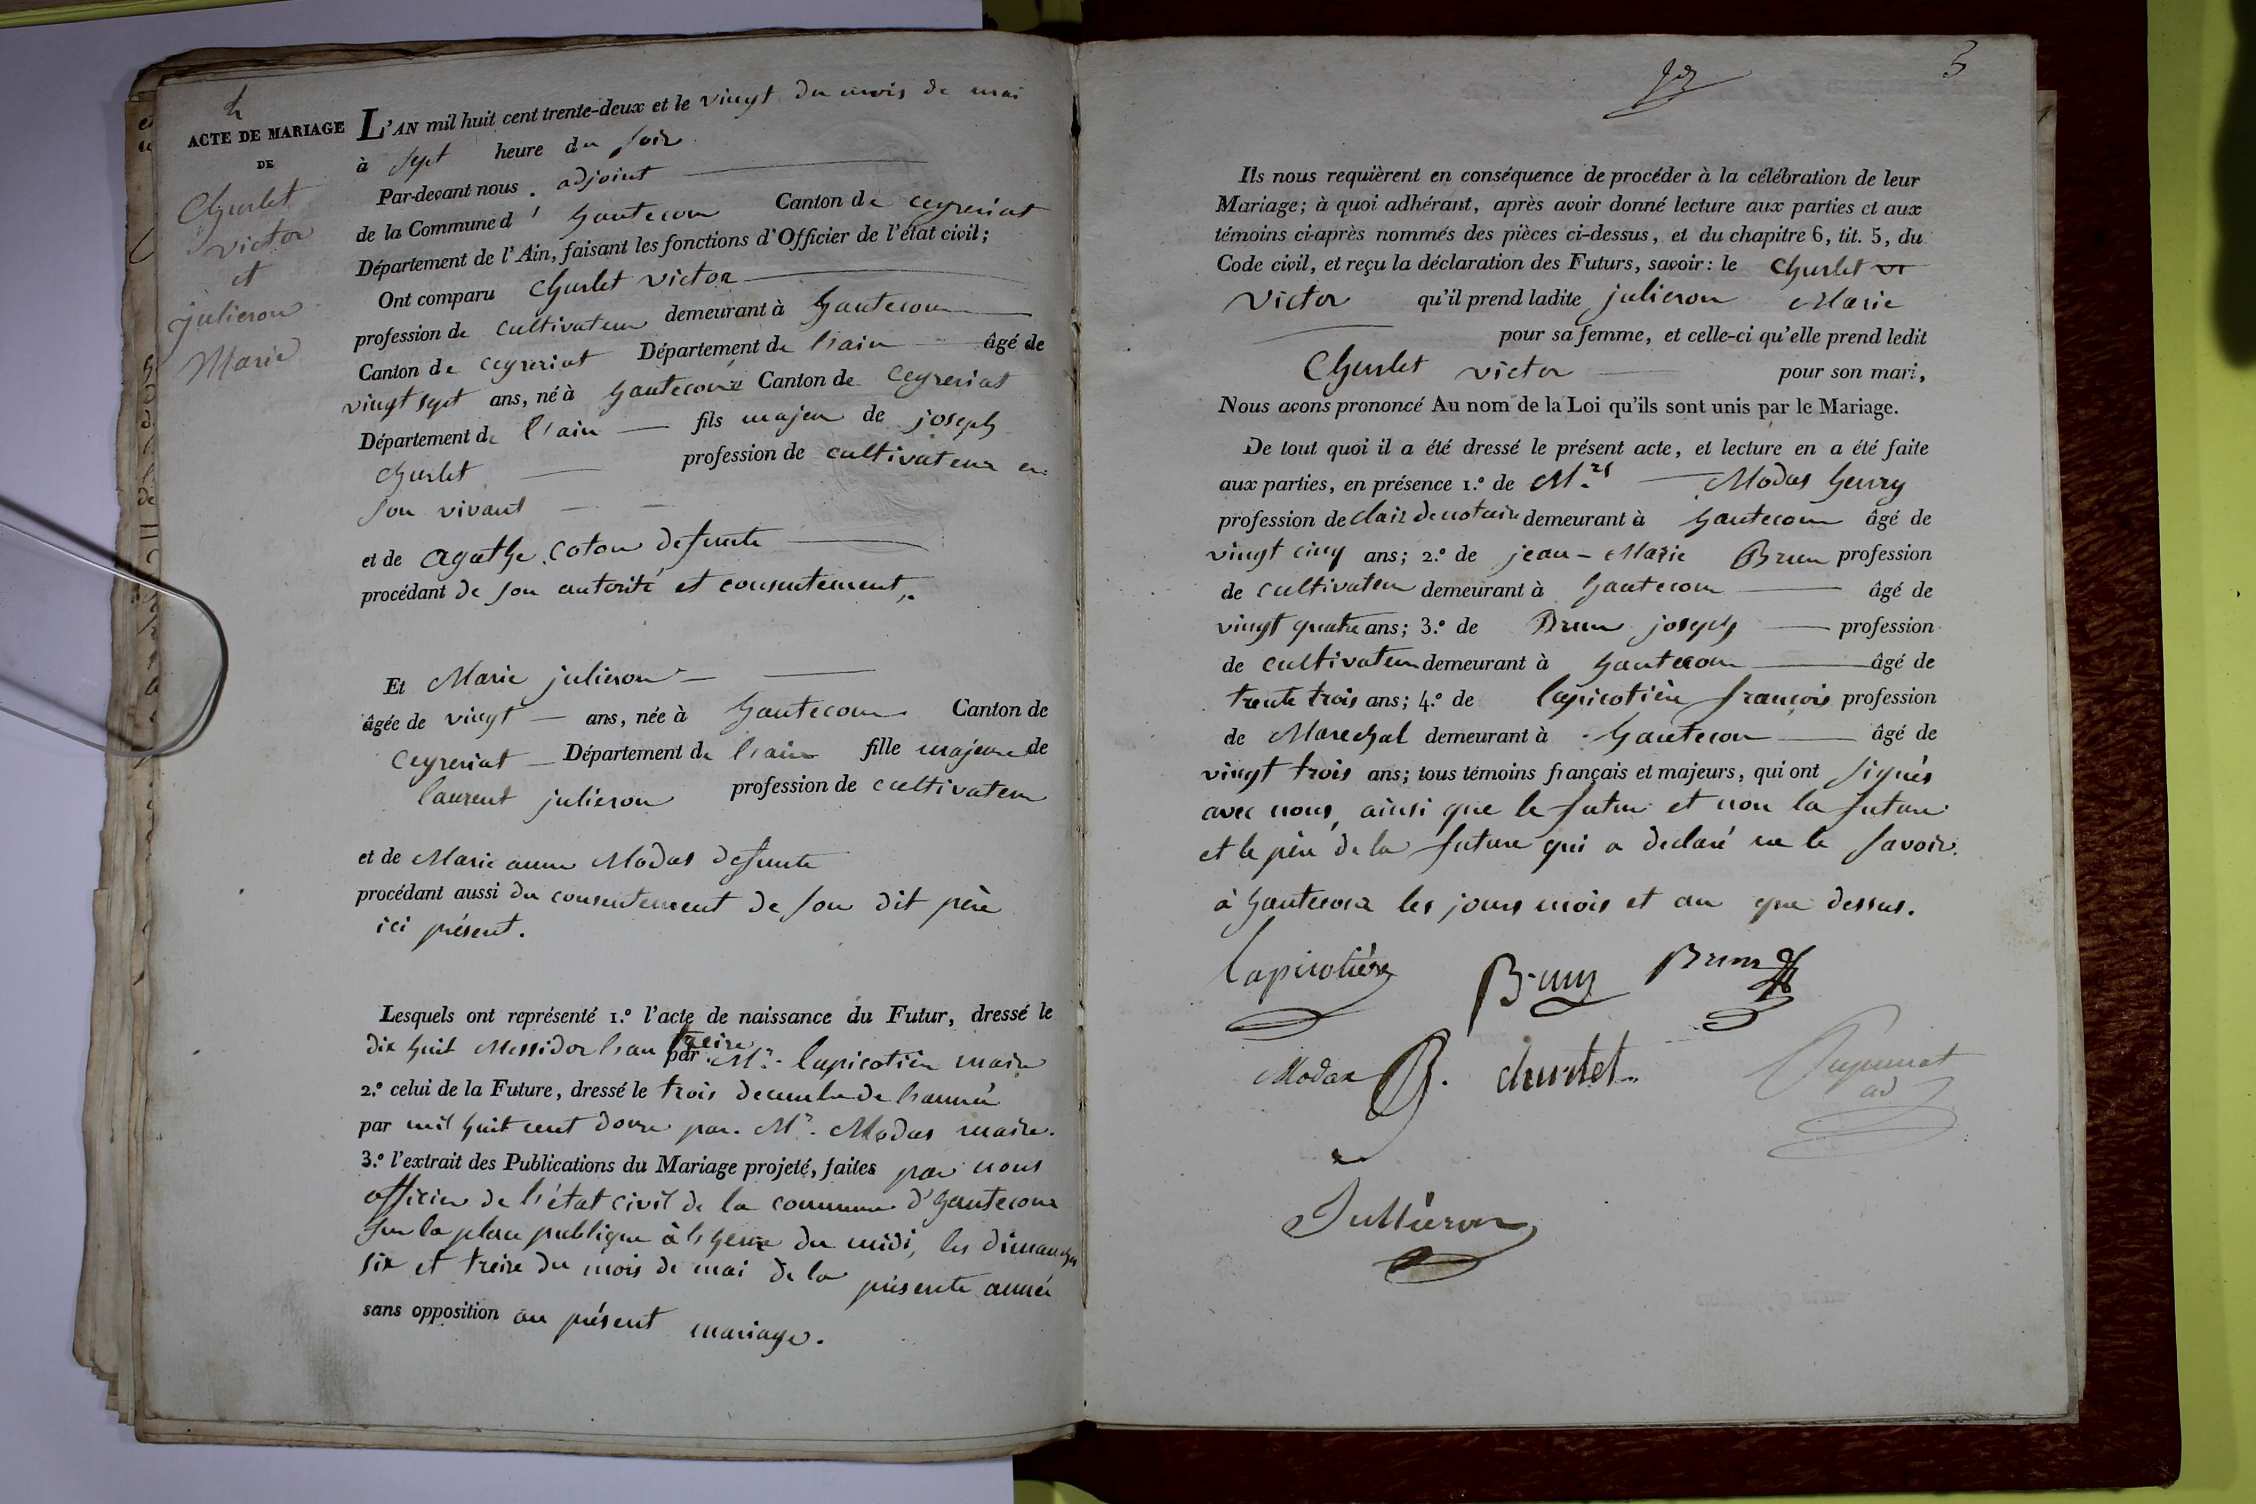 4
ACTE DE MARIAGE
DE
Churlet
victor
et
julieron
Marie
L'AN mil huit cent trente-deux et le vingt du mois de mai
à sept heure du soir
Par-devant nous . adjoint
de la Commune d' hautecour Canton de ceyreriat
Département de l'Ain, faisant les fonctions d'Officier de l'état civil;
Ont comparu Churlet victor
profession de cultivateur demeurant à hautecour
Canton de ceyreriat Département de l'ain âgé de
vingt sept ans, né à hautecour Canton de ceyreriat
Département de l'ain fils majeur de joseph
churlet profession de cultivateur en
son vivant
et de agathe coton defunte
procédant de son autorité et consentement,
Et Marie julieron
âgée de vingt ans, née à hautecour Canton de
Ceyreriat Département de l'ain fille majeure de
laurent julieron profession de cultivateur
et de Marie anne Modas defunte
procédant aussi du consentement de son dit père
ici présent.
Lesquels ont représenté 1.º l'acte de naissance du Futur, dressé le
dix huit Messidor l'an treize par Mr. lapicotière maire
2.º celui de la Future, dressé le trois decembre de l'année
par mil huit cent douze par Mr. Modas maire.
3.º l'extrait des Publications du Mariage projeté, faites par nous
officier de l'état civil de la commune d'hautecour
sur la place publique à l'heure du midi, les dimanches
six et treize du mois de mai de la présente année
sans opposition au présent mariage.
3
Ils nous requièrent en conséquence de procéder à la célébration de leur
Mariage; à quoi adhérant, après avoir donné lecture aux parties et aux
témoins ci-après nommés des pièces ci-dessus, et du chapitre 6, tit. 5, du
Code civil, et reçu la déclaration des Futurs, savoir: le Churlet vi
victor qu'il prend ladite julieron Marie
pour sa femme, et celle-ci qu'elle prend ledit
Churlet victor pour son mari,
Nous avons prononcé Au nom de la Loi qu'ils sont unis par le Mariage.
De tout quoi il a été dressé le présent acte, et lecture en a été faite
aux parties, en présence 1.º de M.rs Modas henry
profession de clair de notaire demeurant à hautecour âgé de
vingt cinq ans; 2.º de jean-Marie Brun profession
de cultivateur demeurant à hautecour âgé de
vingt quatre ans; 3.º de Brun joseph profession
de cultivateur demeurant à hautecour âgé de
trente trois ans; 4.º de lapicotière françois profession
de Marechal demeurant à hautecour âgé de
vingt trois ans; tous témoins français et majeurs, qui ont signés
avec nous, ainsi que le futur et non la future
et le père de la future qui a declaré ne le savoir.
à hautecour les jours mois et an que dessus.
Lapicotière Brun Brun
Modas churlet
ad
Jullieron